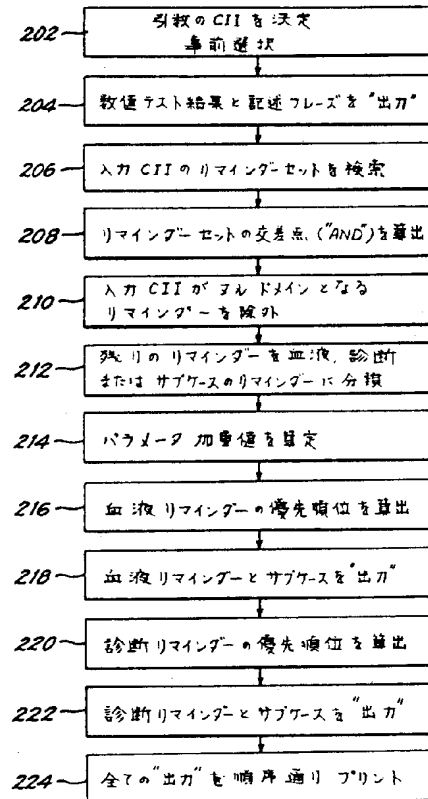 202
引数のCIIを決定
事前選択
204
数値テスト結果と記述フレーズを"出力"
206
入力CIIのリマインダーセットを検索
208
リマインダーセットの交差点("AND")を算出
210
入力CIIがヌルドメインとなる
リマインダーを除外
212
残りのリマインダーを血液、診断
またはサブケースのリマインダーに分類
214
パラメータ加重値を算定
216
血液リマインダーの優先順位を算出
218
血液リマインダーとサブケースを"出力"
220
診断リマインダーの優先順位を算出
222
診断リマインダーとサブケースを"出力"
224
全ての"出力"を順序通りプリント